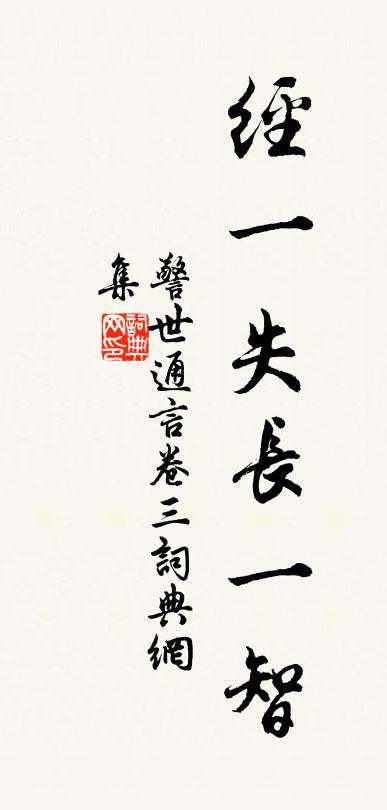 經一失長一智
警世通言卷三詞典網
集
詞典
网印